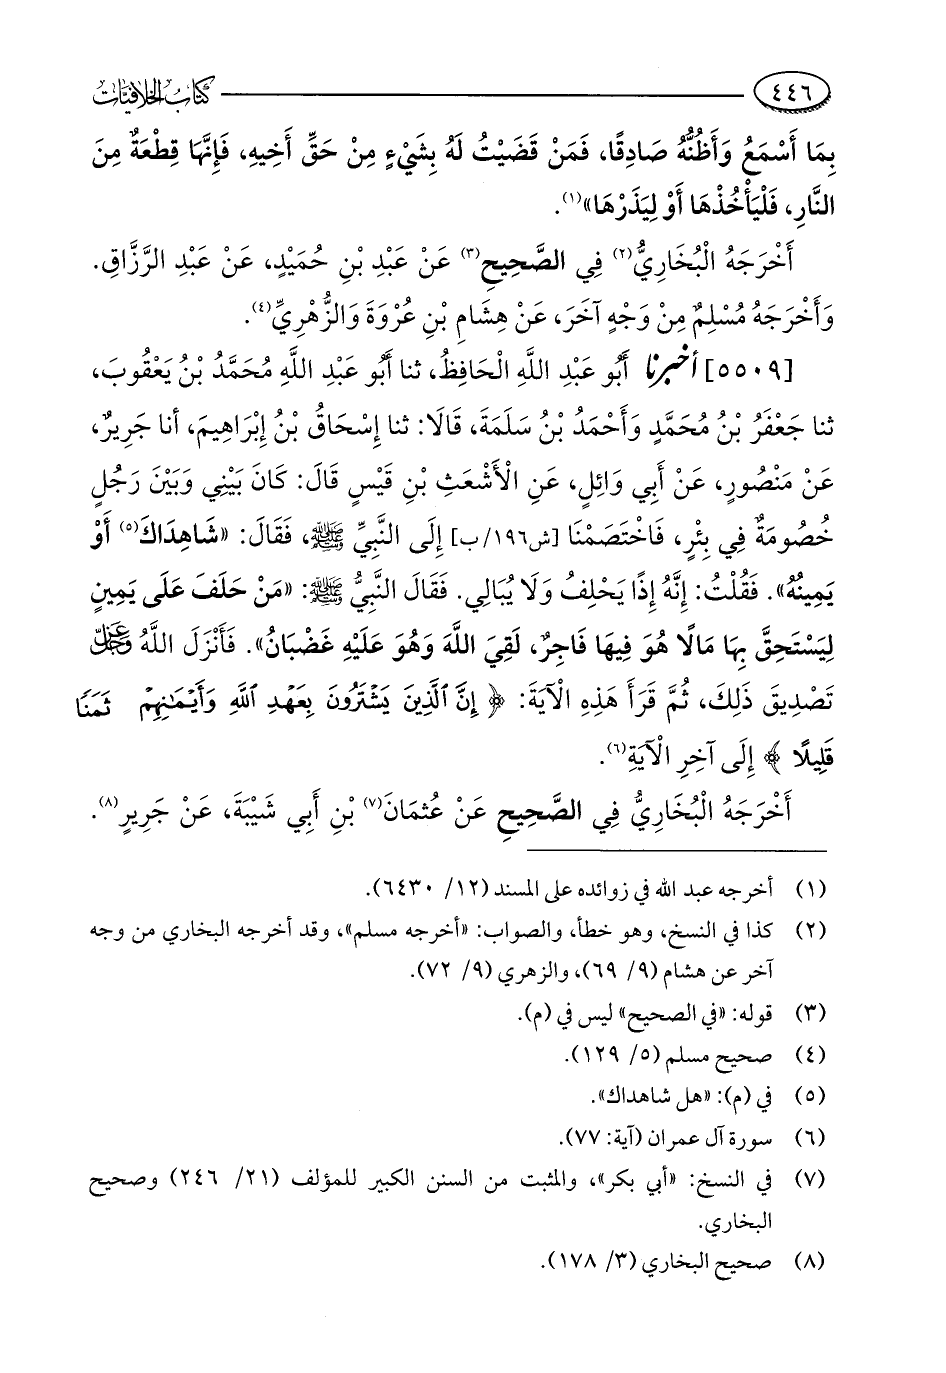 ٤٤٦ كتاب الخلافيات
بِمَا أَسْمَعُ وَأَظُنُّهُ صَادِقًا، فَمَنْ قَضَيْتُ لَهُ بِشَيْءٍ مِنْ حَقِّ أَخِيهِ، فَإِنَّهَا قِطْعَةٌ مِنَ
النَّارِ، فَلْيَأْخُذْهَا أَوْ لِيَذَرْهَا»(١).
أَخْرَجَهُ الْبُخَارِيُّ(٢) فِي الصَّحِيحِ(٣) عَنْ عَبْدِ بْنِ حُمَيْدٍ، عَنْ عَبْدِ الرَّزَّاقِ.
وَأَخْرَجَهُ مُسْلِمٌ مِنْ وَجْهٍ آخَرَ، عَنْ هِشَامِ بْنِ عُرْوَةَ وَالزُّهْرِيِّ(٤).
[٥٥٠٩] أخبرنا أَبُو عَبْدِ اللَّهِ الْحَافِظُ، ثنا أَبُو عَبْدِ اللَّهِ مُحَمَّدُ بْنُ يَعْقُوبَ،
ثنا جَعْفَرُ بْنُ مُحَمَّدٍ وَأَحْمَدُ بْنُ سَلَمَةَ، قَالَا: ثنا إِسْحَاقُ بْنُ إِبْرَاهِيمَ، أنا جَرِيرٌ،
عَنْ مَنْصُورٍ، عَنْ أَبِي وَائِلٍ، عَنِ الْأَشْعَثِ بْنِ قَيْسٍ قَالَ: كَانَ بَيْنِي وَبَيْنَ رَجُلٍ
خُصُومَةٌ فِي بِئْرٍ، فَاخْتَصَمْنَا [ش١٩٦/ب] إِلَى النَّبِيِّ ﷺ، فَقَالَ: «شَاهِدَاكَ(٥) أَوْ
يَمِينُهُ». فَقُلْتُ: إِنَّهُ إِذًا يَحْلِفُ وَلَا يُبَالِي. فَقَالَ النَّبِيُّ ﷺ: «مَنْ حَلَفَ عَلَى يَمِينٍ
لِيَسْتَحِقَّ بِهَا مَالًا هُوَ فِيهَا فَاجِرٌ، لَقِيَ اللَّهَ وَهُوَ عَلَيْهِ غَضْبَانُ». فَأَنْزَلَ اللَّهُ عَزَّ وَجَلَّ
تَصْدِيقَ ذَلِكَ، ثُمَّ قَرَأَ هَذِهِ الْآيَةَ: ﴿ إِنَّ ٱلَّذِينَ يَشْتَرُونَ بِعَهْدِ ٱللَّهِ وَأَيْمَٰنِهِمْ ثَمَنًا
قَلِيلًا ﴾ إِلَى آخِرِ الْآيَةِ(٦).
أَخْرَجَهُ الْبُخَارِيُّ فِي الصَّحِيحِ عَنْ عُثمَانَ(٧) بْنِ أَبِي شَيْبَةَ، عَنْ جَرِيرٍ(٨).
(١) أخرجه عبد الله في زوائده على المسند (١٢/ ٦٤٣٠).
(٢) كذا في النسخ، وهو خطأ، والصواب: «أخرجه مسلم»، وقد أخرجه البخاري من وجه
آخر عن هشام (٩/ ٦٩)، والزهري (٩/ ٧٢).
(٣) قوله: «في الصحيح» ليس في (م).
(٤) صحيح مسلم (٥/ ١٢٩).
(٥) في (م): «هل شاهداك».
(٦) سورة آل عمران (آية: ٧٧).
(٧) في النسخ: «أبي بكر»، والمثبت من السنن الكبير للمؤلف (٢١/ ٢٤٦) وصحيح
البخاري.
(٨) صحيح البخاري (٣/ ١٧٨).